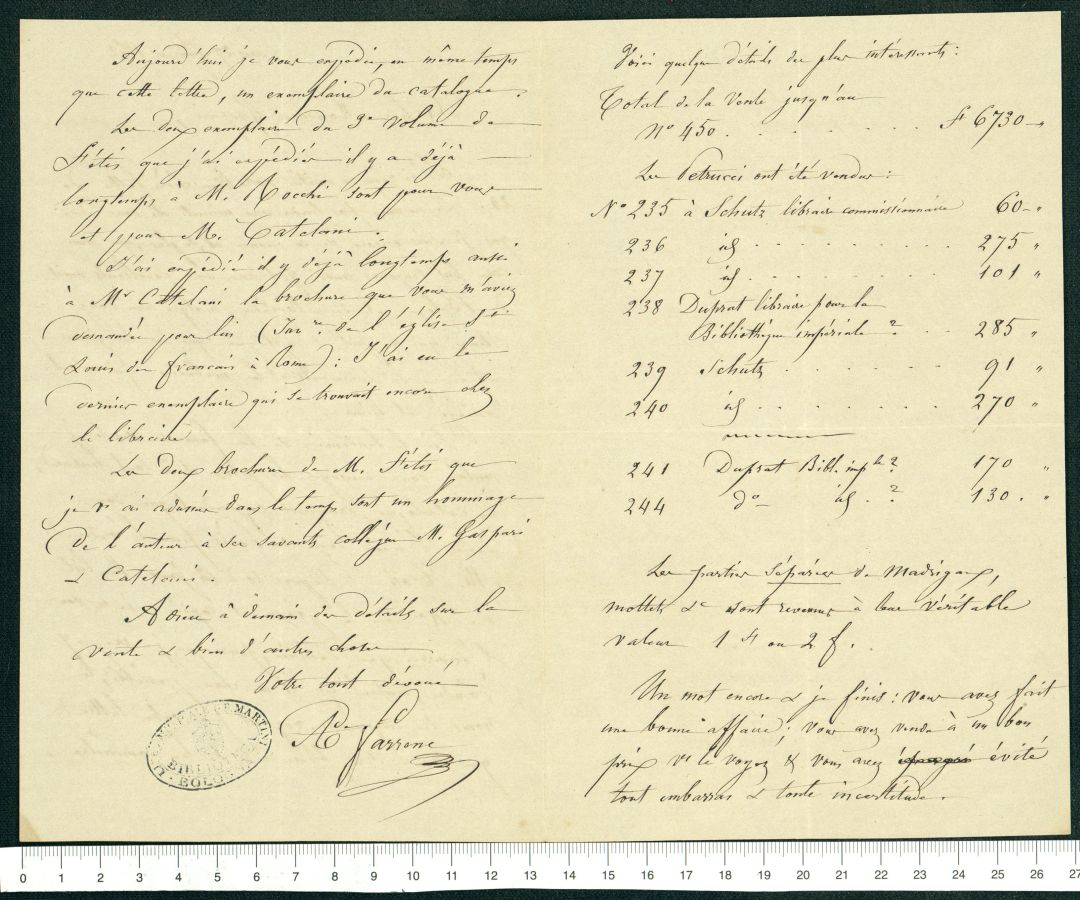 Aujourd'hui je vous expédie, en même temps
que cette lettre, un exemplaire du catalogue.
Les deux exemplaire du 3e volume de
Fétis que j'ai expédiés il y a déjà
longtemps à M. Rocchi sont pour vous
et pour M. Catelani.
J'ai expédié il y déjà longtemps aussi
à Mr Catelani la brochure que vous m'aviez
demandée pour lui (de l'église St
Louis des français à Rome): J'ai eu le
dernier exemplaire qui se trouvait encore chez
le libraire
Les deux brochures de M. Fétis que
je vs ai dans le temps sont un hommage
de l'auteur à ses savants collègues M. Gaspari
& Catelani.
Adieu à demain des détails sur la
vente & bien d'autres choses
Votre tout dévoué
Ad Farrenc
BOLOGNA
Voici quelques détails des plus intéressants:
Total de la vente jusqu'au
No 450 . . . . . . . . f 6730 - "
Les Petrucci ont été vendus:
No 235 à Schutz libraire commissionnaire 60 - "
236 id . . . . . . . . 275 "
237 id . . . . . . . . 101 "
238 Duprat libraire pour la
Bibliothèque impériale ? . . 285 "
239 Schutz . . . . . . . 91 "
240 id . . . . . . . . 270 "
241 Duprat Bibl. imple ? 170 "
244 do id . ? 130 . "
Les parties séparées de Madrigaux,
mottets &c sont revenues à leur véritable
valeur 1 f ou 2 f.
Un mot encore & je finis: vous avez fait
une bonne affaire; vous avez vendu à un bon
prix vs le voyez & vous avez évité
tout embarras & toute incertitude.
0 1 2 3 4 5 6 7 8 9 10 11 12 13 14 15 16 17 18 19 20 21 22 23 24 25 26 27